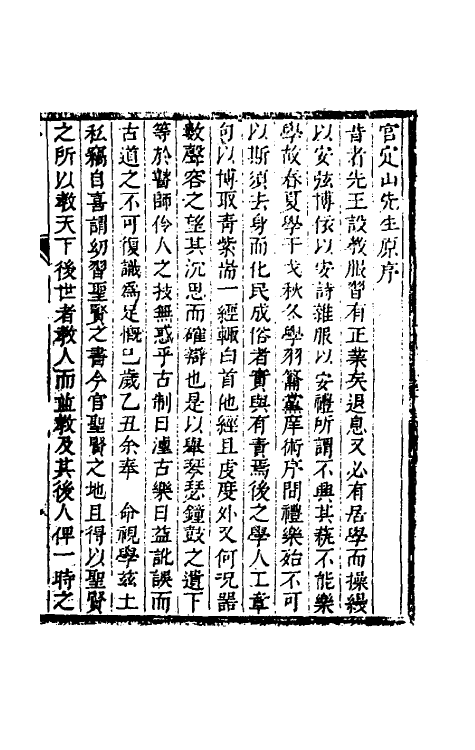 官定山先生原序
昔者先王設教服習有正業矣退息又必有居學而操縵
以安弦博依以安詩雜服以安禮所謂不興其藝不能樂
學故春夏學干戈秋冬學羽籥黨庠術序間禮樂始不可
以斯須去身而化民成俗者實與有責焉後之學人工章
句以博取青紫耑一經輒白首他經且虔度外又何况器
數聲容之望其沉思而確辯也是以舉琴瑟鐘鼓之遺下
等於瞽師伶人之技無惑乎古制日湮古樂日益訛誤而
古道之不可復識爲足慨已歲乙丑余奉 命視學兹土
私竊自喜謂幼習聖賢之書今官聖賢之地且得以聖賢
之所以教天下後世者教人而並教及其後人俾一時之